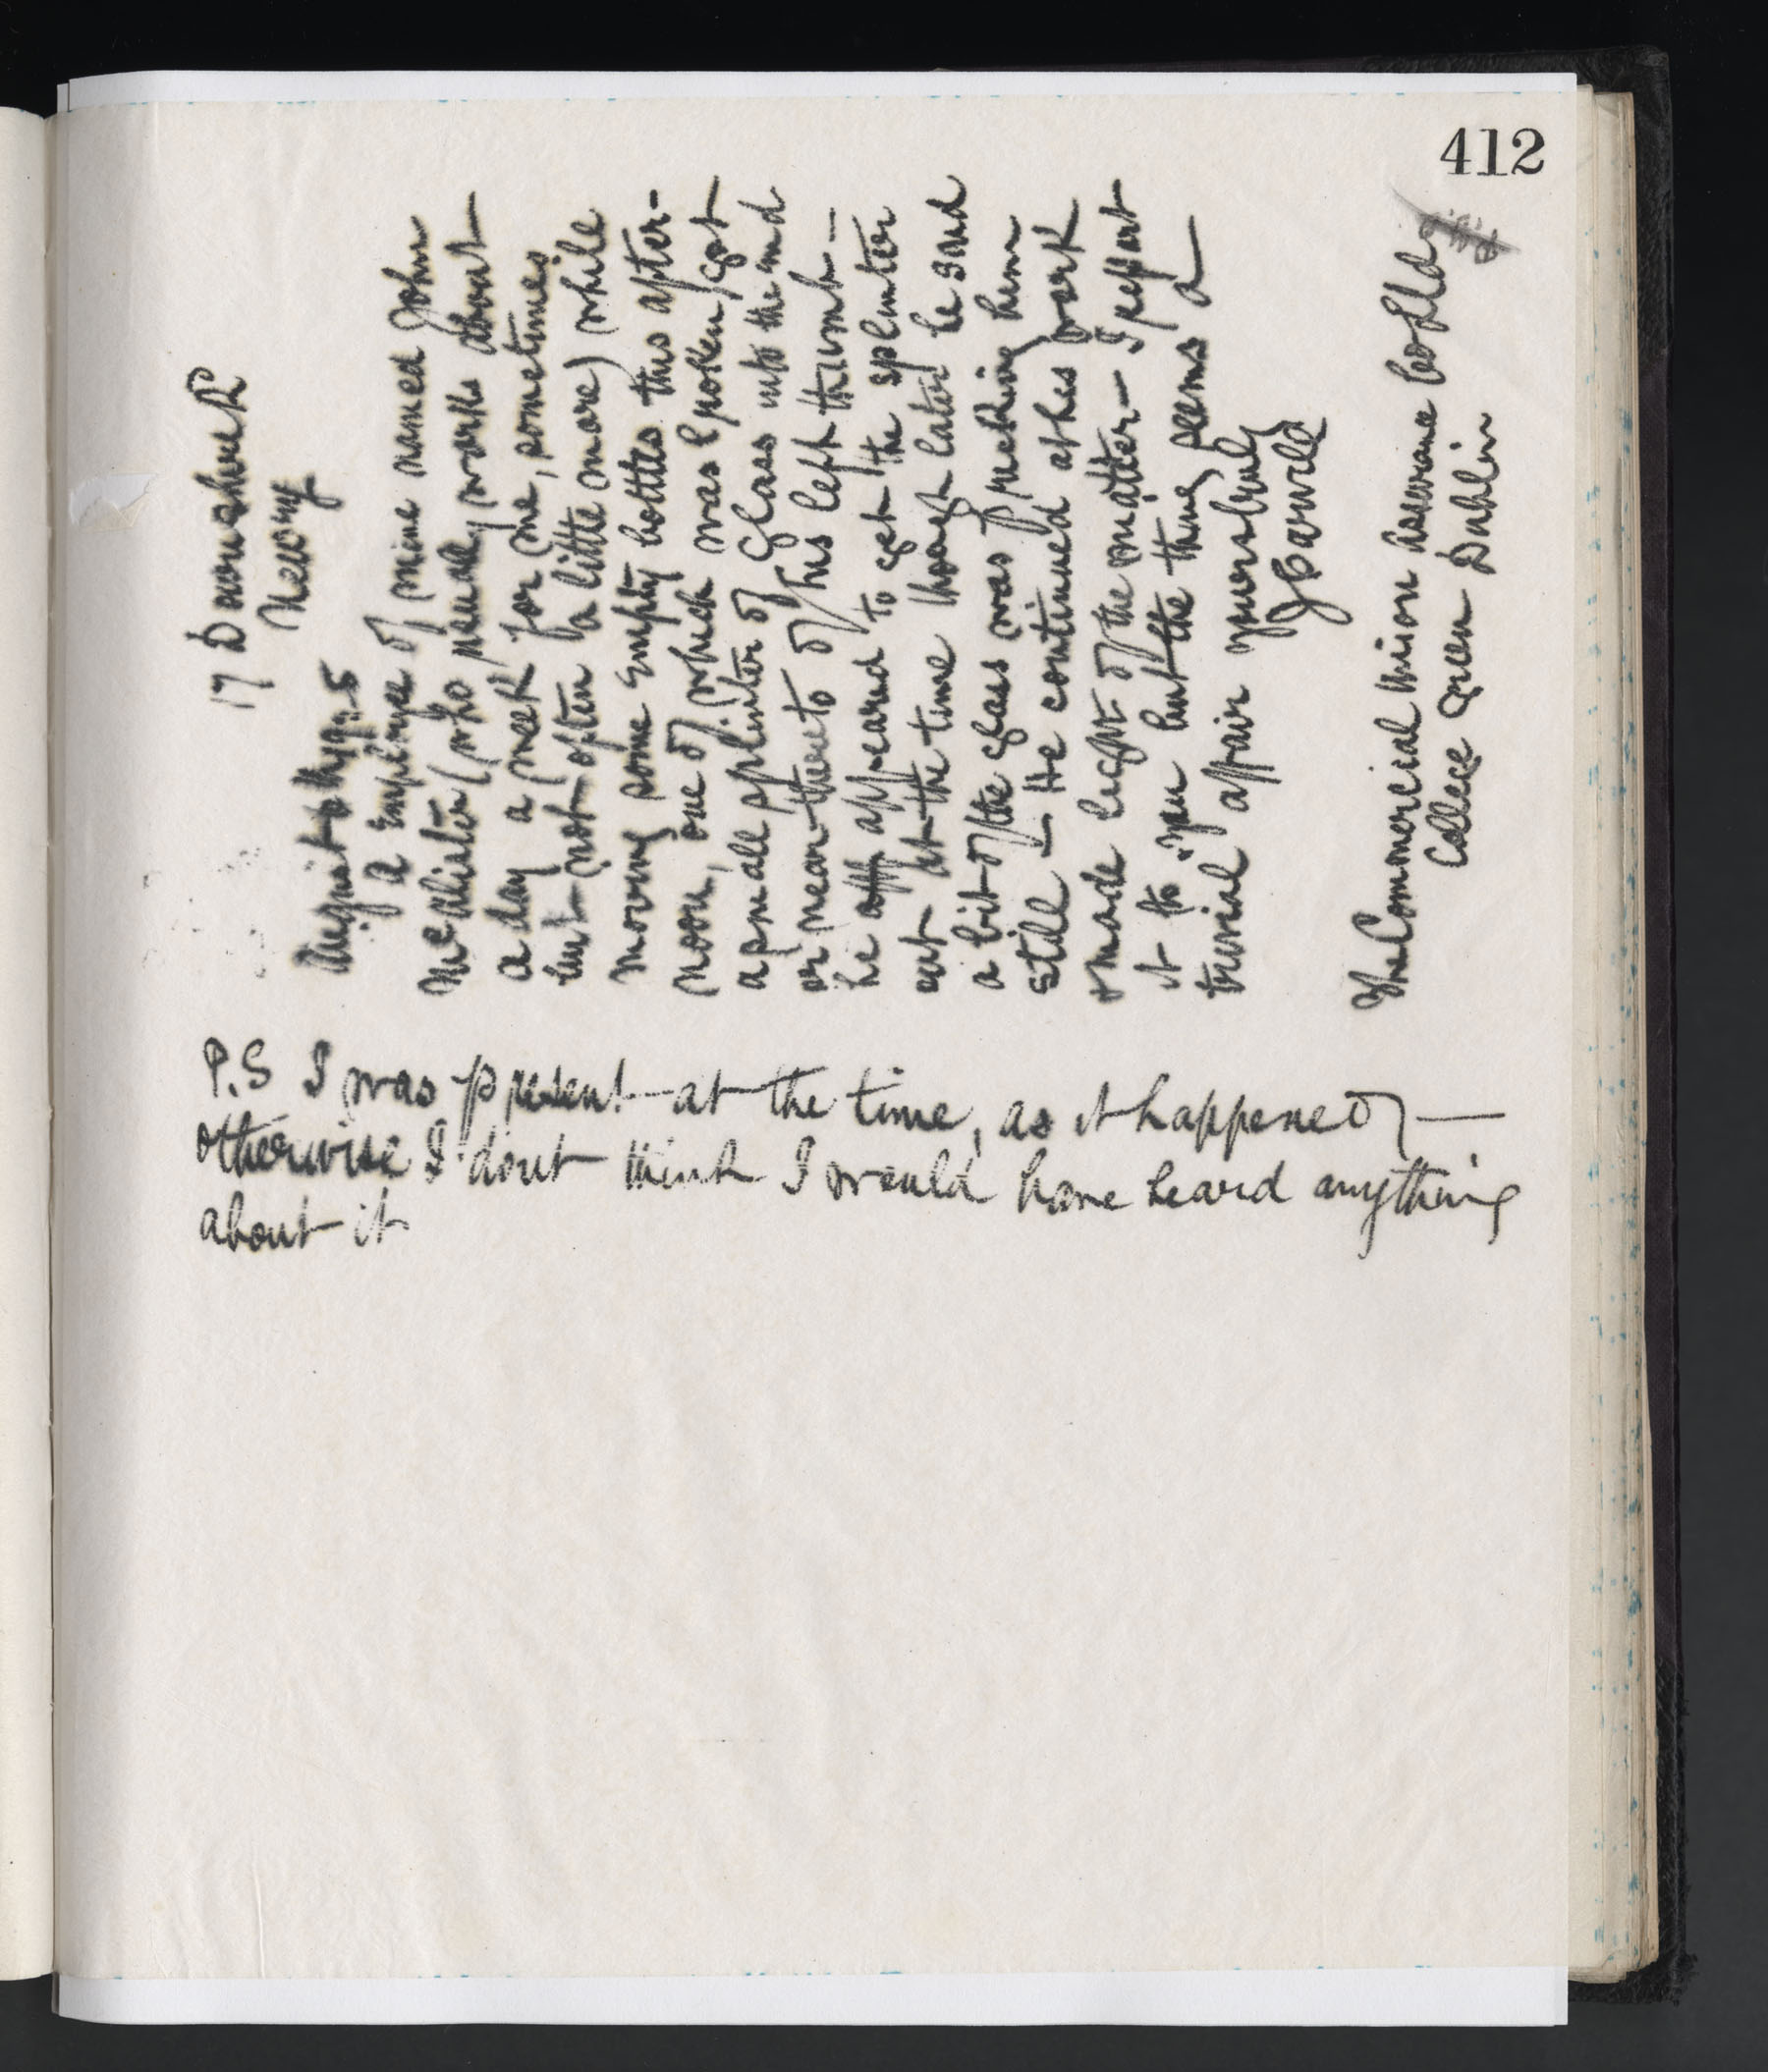 412
17 Downshire Rd
Newry
August 8th 1925
a Employee of mine named John
McAlister (who usually works about
a day a week for me, sometimes
but not often a little more) while
moving some Empty bottles this after-
noon, one of which was broken, got
a small splinter of glass into the end
or near there to of his left thumb —
he appeared to get the splinter
out at the time though later he said
a bit of the glass was pricking him
still — He continued at his work
& made light of the matter — I report
it to you but the thing seems a
trivial affair yours truly
The Commercial Union Assurance Co Ltd
College Green Dublin
P.S I was present at the time, as it happened —
otherwise I dont think I would have heard anything
about it